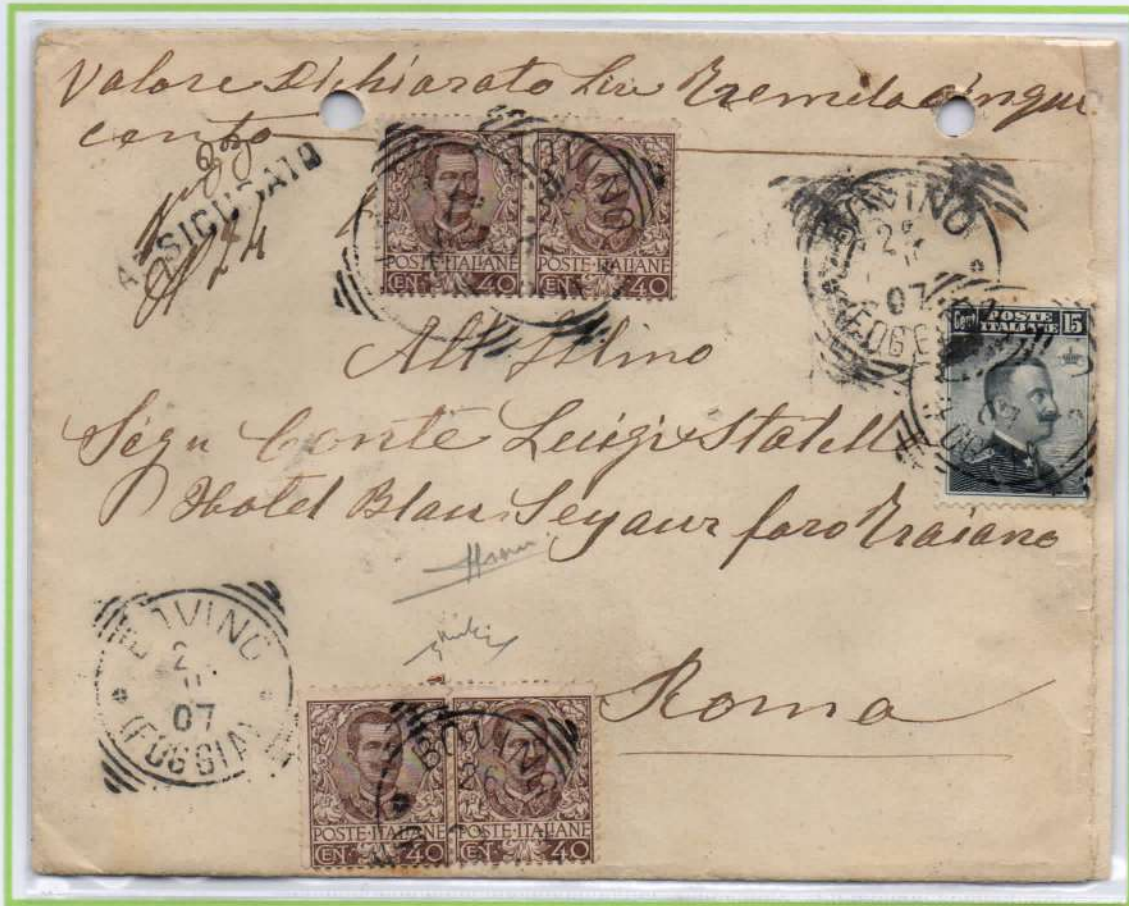 Valore Dichiarato Lire Tremilacinque
cento
ASSICURATO
24
BOVINO
POSTE·ITALIANE POSTE·ITALIANE
CEN 40 CEN 40
BOVINO
2
07
(FOGGIA)
Cent POSTE ITALIANE 15
All Illmo
Sign Conte Luigi Statell
Hotel Blan Seyaur foro Traiano
Roma
BOVINO
2
07
(FOGGIA)
BOVINO
26
POSTE·ITALIANE POSTE·ITALIANE
CEN 40 CEN 40